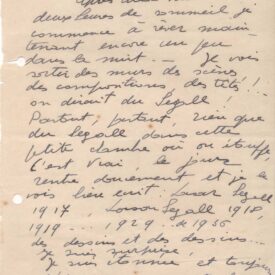 Après
deux heures de sommeil je
commence à rêver main-
tenant encore un peu
dans la nuit — Je vois
sortir des murs des scènes
des compositions des têtes!!
on dirait du Segall!
Partout, partout, rien que
du Segall dans cette
petite chambre où on étouffe
C'est vrai le jour
rentre doucement et je le
vois bien ecrit: Lasar Segall
1917 Lasar Segall 1918
1919 — 1929 — de 1936
des dessins et des dessins...
Je suis surprise,
Je suis étonnée et toujours